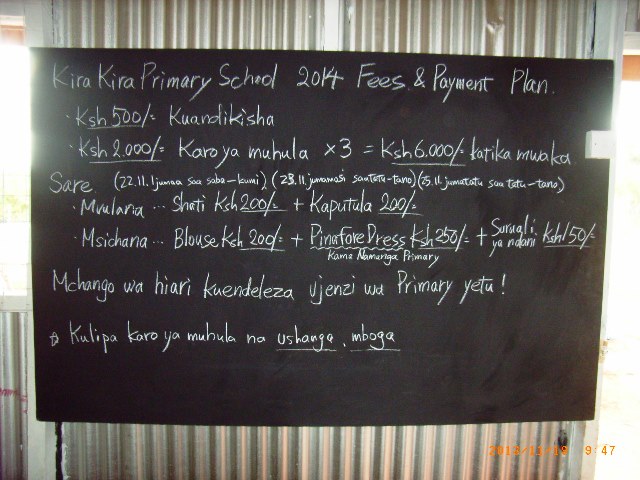 Kira Kira Primary School 2014 Fees & Payment Plan.
· Ksh 500/= Kuandikisha
· Ksh 2.000/= Karo ya muhula ×3 = Ksh 6.000/= katika mwaka
Sare (22.11. Ijumaa saa saba-kumi) (23.11. jumamosi saa tatu-tano) (25.11. jumatatu saa tatu-tano)
· Mvulana ... Shati Ksh 200/= + Kaputula 200/=
· Msichana ... Blouse Ksh 200/= + Pinafore Dress Ksh 250/= + Suruali ya ndani Ksh 150/=
Kama Namanga Primary
Mchango wa hiari kuendeleza ujenzi wa Primary yetu!
Kulipa karo ya muhula na ushanga, mboga
9:47